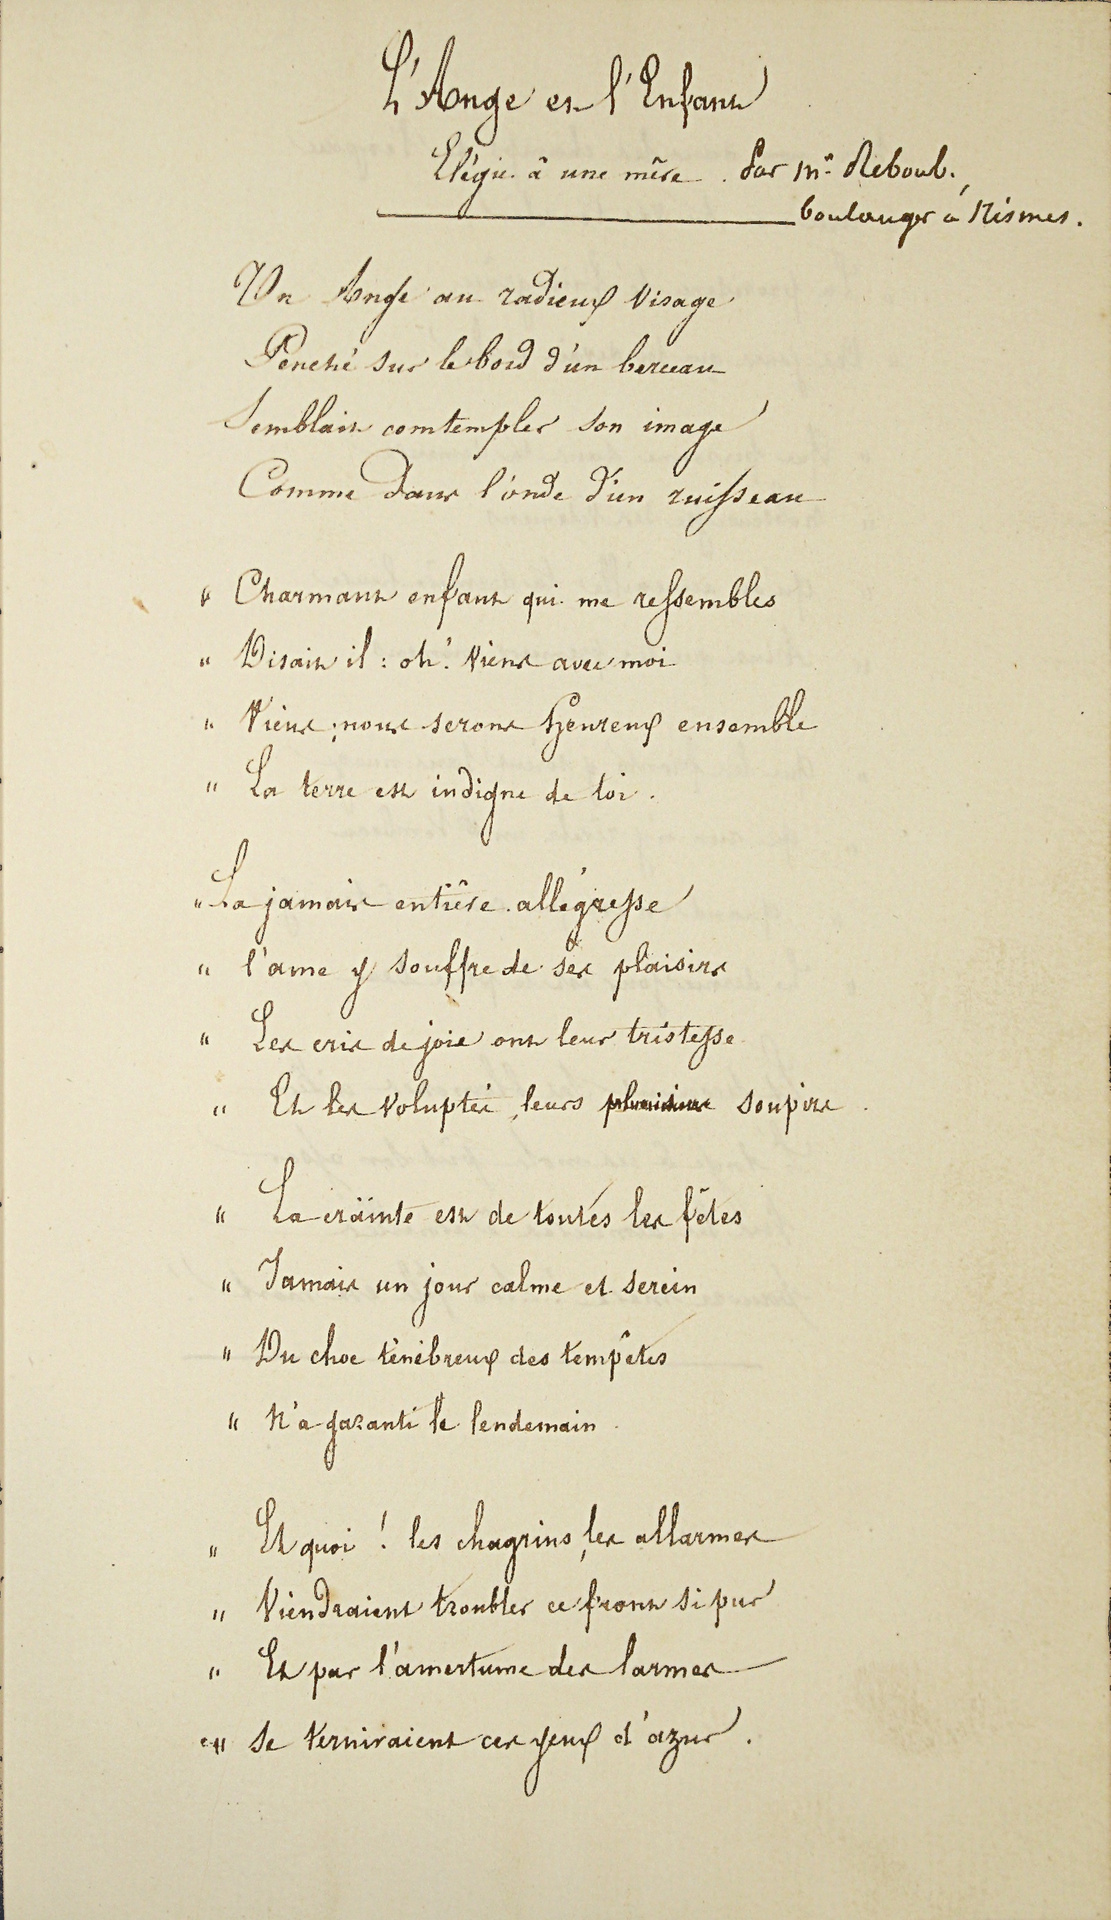 L'Ange et l'Enfant
Elégie à une mère. Par Mr. Reboul.,
boulanger à Nismes.
Un Ange au radieux visage
Penché sur le bord d'un berceau
Semblait comtempler son image
Comme dans l'onde d'un ruisseau
" Charmant enfant qui me ressembles
" Disait il : oh ! viens avec moi
" Viens ; nous serons heureux ensemble
" La terre est indigne de toi.
" La jamais entière allégresse
" l'ame y souffre de ses plaisirs
" Les cris de joie ont leur tristesse
" Et les voluptés, leurs soupirs.
" La crainte est de toutes les fêtes
" Jamais un jour calme et serein
" Du choc ténébreux des tempêtes
" N'a garanti le lendemain.
" Et quoi ! les chagrins, les allarmes
" Viendraient troubler ce front si pur
" Et par l'amertume des larmes
" se terniraient ces yeux d'azur.